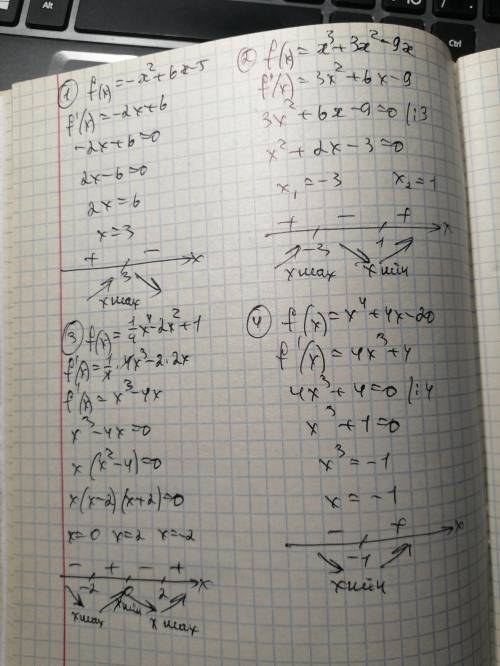 ① f(x)=-x²+6x-5
f'(x)=-2x+6
-2x+6=0
2x-6=0
2x=6
x=3
+ - x
3
xmax
② f(x)=x³+3x²-9x
f'(x)=3x²+6x-9
3x²+6x-9=0 |:3
x²+2x-3=0
x₁=-3 x₂=1
+ - + x
-3 1
xmax xмин
③ f(x)=1/4x⁴-2x²+1
f'(x)=1/4·4x³-2·2x
f'(x)=x³-4x
x³-4x=0
x(x²-4)=0
x(x-2)(x+2)=0
x=0 x=2 x=-2
- + - + x
-2 0 2
xmax xмин xmax
④ f(x)=x⁴+4x-20
f'(x)=4x³+4
4x³+4=0 |:4
x³+1=0
x³=-1
x=-1
- + x
-1
xмин
Ctrl